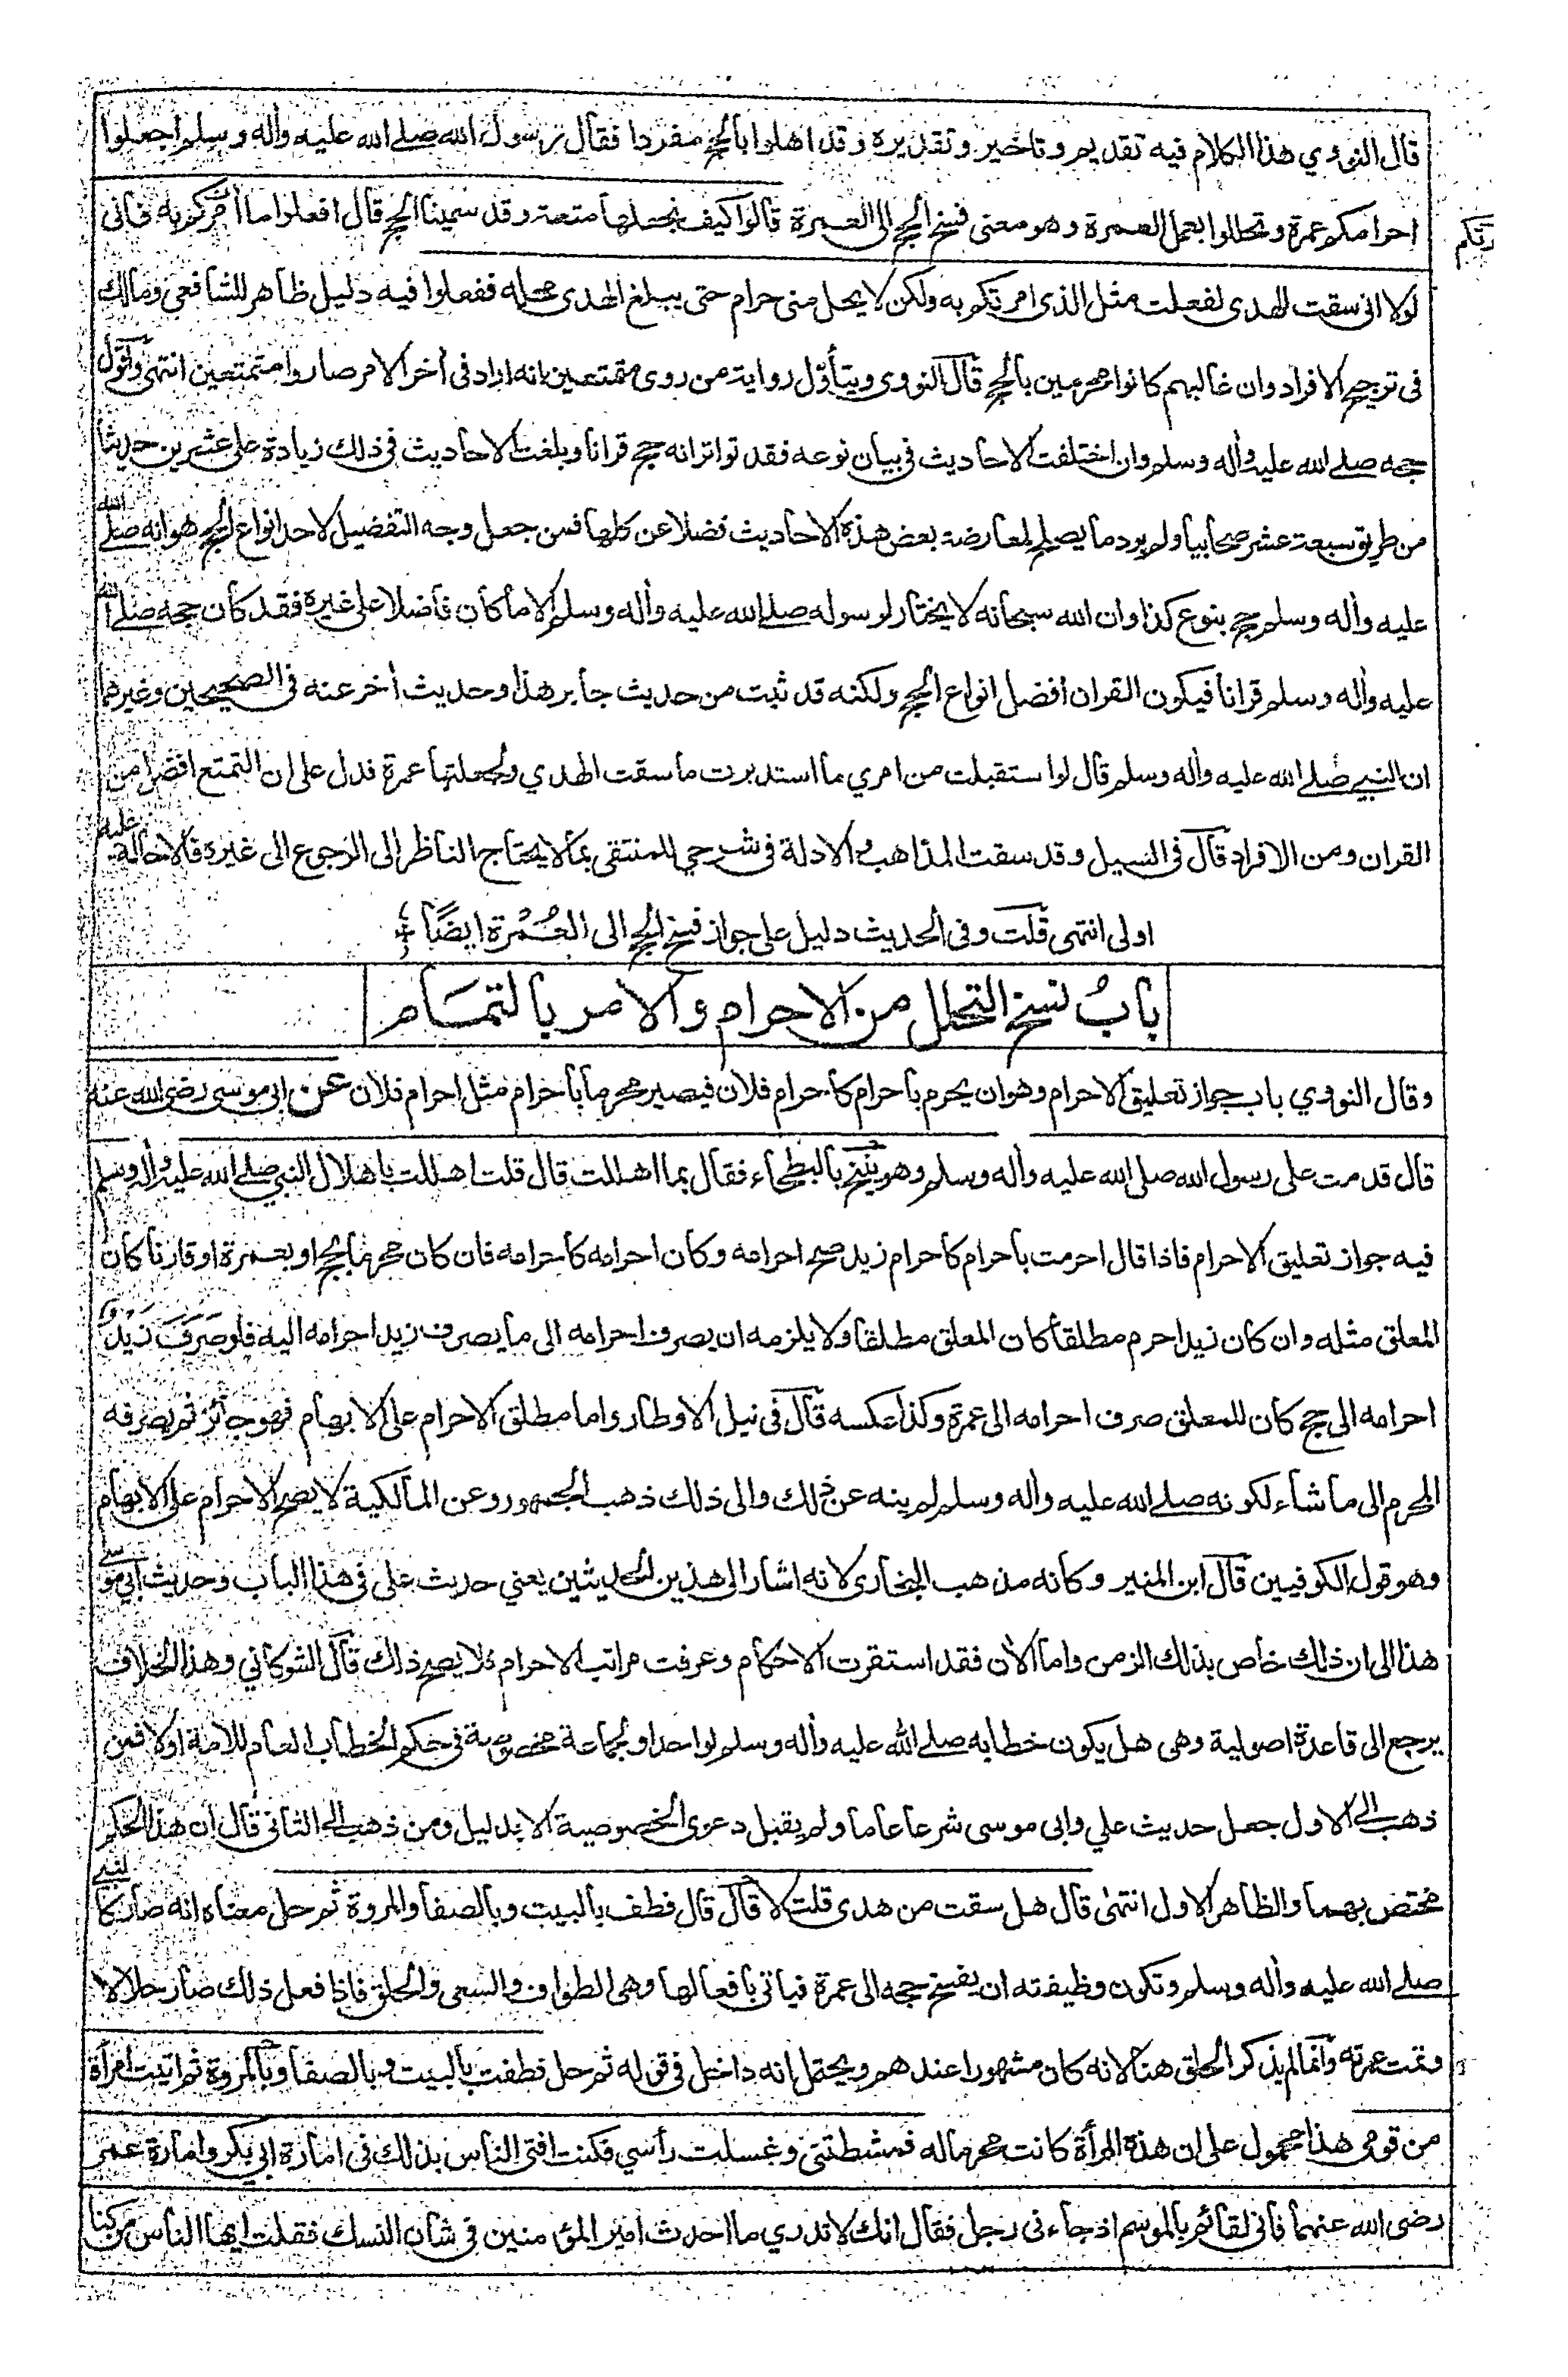 قال النووي هذا الكلام فيه تقديم وتاخير وتقديره وقد اهلوا بالحج مفردا فقال رسول الله صلے الله عليه واٰله وسلم اجعلوا
احرامكم عمرة وتحللوا بعمل العمرة وهو معنى فسخ الحج الى العمرة قالوا كيف نجعلها متعة وقد سمينا الحج قال افعلوا ما اٰمركم به فانى
رتكم
لولا انى سقت الهدى لفعلت مثل الذى امرتكم به ولكن لا يحل منى حرام حتى يبلغ الهدى محله ففعلوا فيه دليل ظاهر للشافعى ومالك
فى ترجيح الافراد وان غالبهم كانوا محرمين بالحج قال النووى ويتأوّل رواية من روى متمتعين بانه اراد فى اٰخر الامر صاروا متمتعين انتهى واقول
حجه صلے الله عليه واٰله وسلم وان اختلفت الاحاديث فى بيان نوعه فقد تواتر انه حج قرانا وبلغت الاحاديث فى ذلك زيادة على عشرين حديثا
من طريق سبعة عشر صحابيا ولم يرد ما يصلح لمعارضة بعض هذه الاحاديث فضلا عن كلها فمن جعل وجه التفضيل لاحد انواع الحج هو انه صلے الله
عليه واٰله وسلم حج بنوع كذا وان الله سبحانه لا يختار لرسوله صلے الله عليه واٰله وسلم الا ما كان فاضلا على غيره فقد كان حجه صلے الله
عليه واٰله وسلم قرانا فيكون القران افضل انواع الحج ولكنه قد ثبت من حديث جابر هذا وحديث اٰخر عنه فى الصحيحين وغيرهما
ان النبي صلے الله عليه واٰله وسلم قال لو استقبلت من امري ما استدبرت ما سقت الهدي ولجعلتها عمرة فدل على ان التمتع افضل من
القران ومن الافراد قال فى السيل وقد سقت المذاهب والادلة فى شرحي للمنتقى بما لا يحتاج الناظر الى الرجوع الى غيره فالاحالة عليه
اولى انتهى قلت وفى الحديث دليل على جواز فسخ الحج الى العُمْرة ايضًا
بابُ نسخ التحلل من الاحرام والامر بالتمام
وقال النووي باب جواز تعليق الاحرام وهو ان يحرم باحرام كاحرام فلان فيصير محرما باحرام مثل احرام فلان عن ابى موسى رضى الله عنه
قال قدمت على رسول الله صلى الله عليه واٰله وسلم وهو ينيخ بالبطحاء فقال بما اهللت قال قلت اهللت باهلال النبي صلے الله عليه واٰله وسلم
فيه جواز تعليق الاحرام فاذا قال احرمت باحرام كاحرام زيد صح احرامه وكان احرامه كاحرامه فان كان محرما بحج او بعمرة او قارنا كان
المعلق مثله وان كان زيد احرم مطلقا كان المعلق مطلقا ولا يلزمه ان يصرف احرامه الى ما يصرف زيد احرامه اليه فلو صَرَفَ زيدٌ
احرامه الى حج كان للمعلق صرف احرامه الى عمرة وكذا عكسه قال فى نيل الاوطار واما مطلق الاحرام على الابهام فهو جائز ثم يصرفه
المحرم الى ما شاء لكونه صلے الله عليه واٰله وسلم لم ينه عن ذلك والى ذلك ذهب الجمهور وعن المالكية لا يصح الاحرام على الابهام
وهو قول الكوفيين قال ابن المنير وكانه مذهب البخارى لانه اشار الى هذين الحديثين يعني حديث على فى هذا الباب وحديث ابي موسے
هذا الى ان ذلك خاص بذلك الزمن واما الاٰن فقد استقرت الاحكام وعرفت مراتب الاحرام فلا يصح ذلك قال الشوكاني وهذا الخلاف
يرجع الى قاعدة اصولية وهى هل يكون خطابه صلے الله عليه واٰله وسلم لواحد او لجماعة مخصوصة فى حكم الخطاب العام للامة اولا فمن
ذهب الى الاول جعل حديث علي وابى موسى شرعا عاما ولم يقبل دعوى الخصوصية الا بدليل ومن ذهب الى الثانى قال ان هذا الحكم
مختص بهما والظاهر الاول انتهى قال هل سقت من هدى قلت لا قال قال فطف بالبيت وبالصفا والمروة ثم حل معناه انه صار كالنبي
صلے الله عليه واٰله وسلم وتكون وظيفته ان يفسخ حجه الى عمرة فياتى بافعالها وهى الطواف والسعى والحلق فاذا فعل ذلك صار حلالا
وتمت عمرته وانما لم يذكر الحلق هنا لانه كان مشهورا عندهم ويحتمل انه داخل فى قوله ثم حل فطفت بالبيت وبالصفا وبالمروة ثم اتيت امرأة
من قومى هذا محمول على ان هذه المرأة كانت محرما له فمشطتنى وغسلت رأسي فكنت افتى الناس بذلك فى امارة ابي بكر وامارة عمر
رضى الله عنهما فانى لقائم بالموسم اذ جاءنى رجل فقال انك لا تدري ما احدث امير المؤمنين فى شان النسك فقلت ايها الناس من كنا